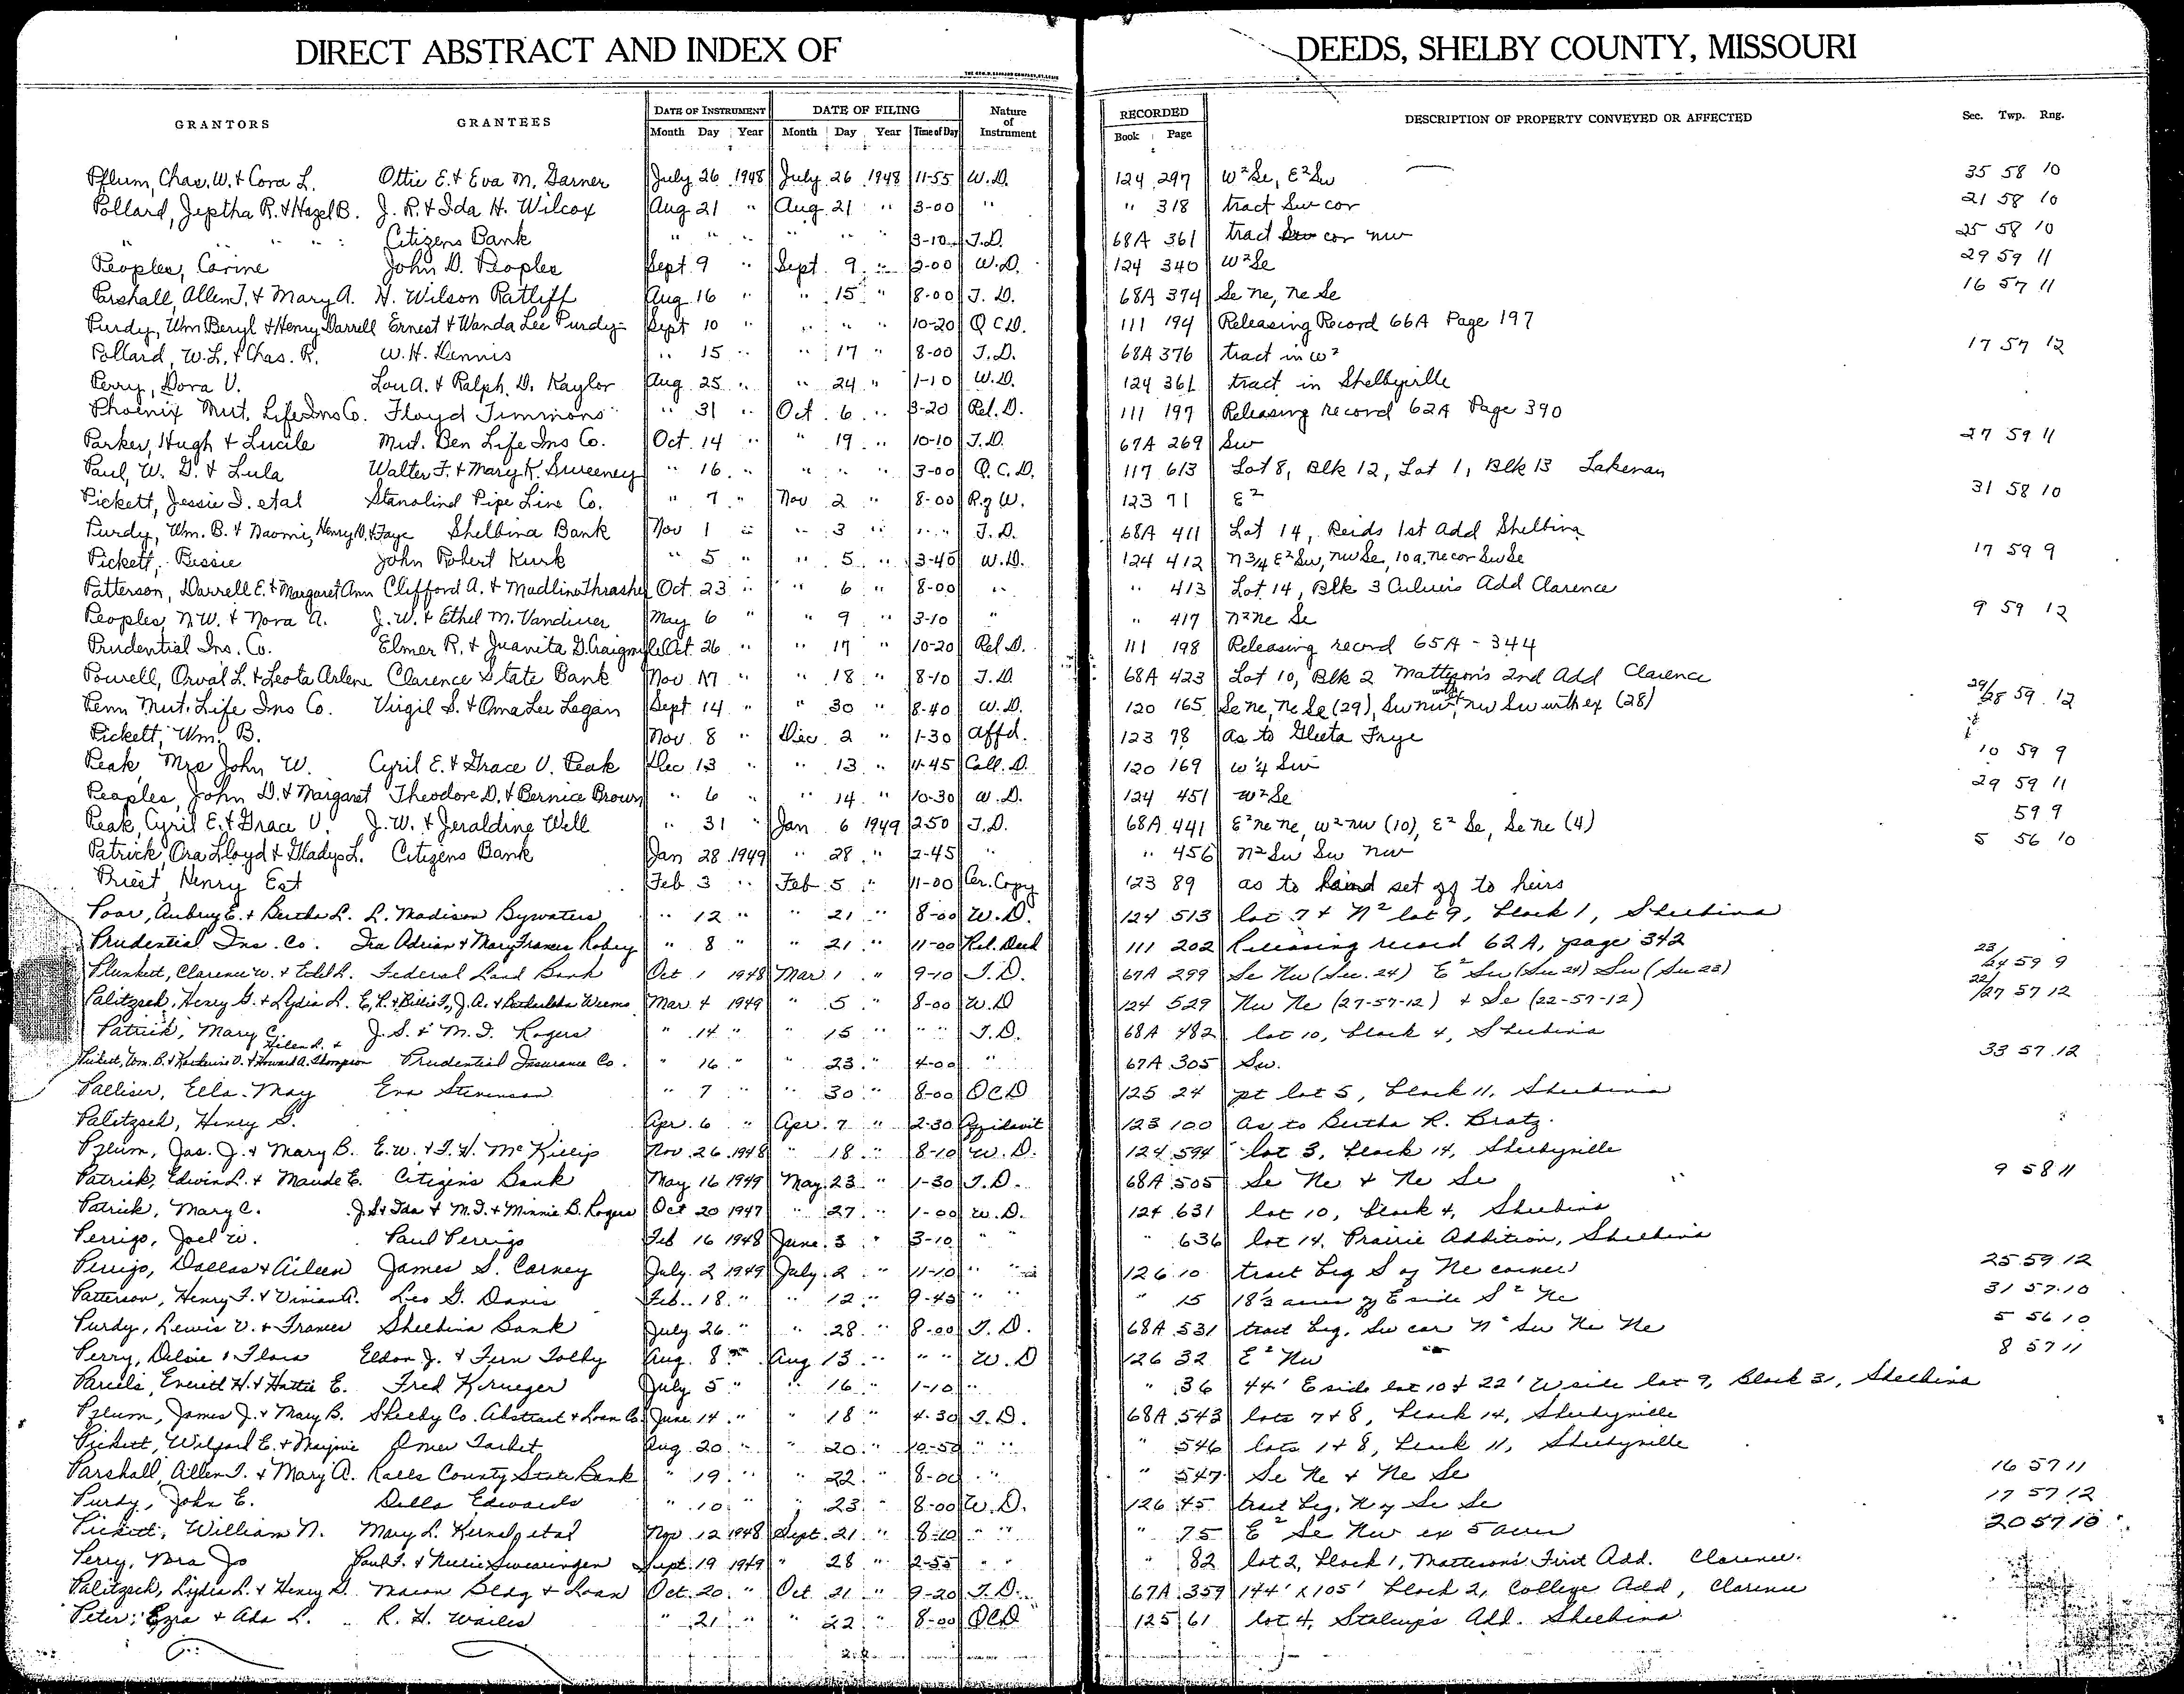 DIRECT ABSTRACT AND INDEX OF DEEDS, SHELBY COUNTY, MISSOURI
GRANTORS GRANTEES DATE OF INSTRUMENT DATE OF FILING Nature of Instrument RECORDED DESCRIPTION OF PROPERTY CONVEYED OR AFFECTED Sec. Twp. Rng.
Month Day Year Month Day Year Time of Day Book Page
Pflum, Chas. W. & Cora L. Ottie E. & Eva M. Garner July 26 1948 July 26 1948 11-55 W.D. 124 297 W² Se, E² Sw 35 58 10
Pollard, Jeptha R. & Hazel B. J. R. & Ida H. Wilcox Aug 21 " Aug 21 " 3-00 " " 318 tract Sw cor 21 58 10
" " " " Citizens Bank " " " " " " 3-10 T.D. 68A 361 tract cor nw 25 58 10
Peoples, Corine John D. Peoples Sept 9 " Sept. 9 " 2-00 W.D. 124 340 W² Se 29 59 11
Parshall, Allen T. & Mary A. H. Wilson Ratliff Aug 16 " " 15 " 8-00 T.D. 68A 374 Se ne, ne Se 16 57 11
Purdy, Wm Beryl & Henry Darrell Ernest & Wanda Lee Purdy Sept 10 " " " " 10-20 Q C D. 111 194 Releasing Record 66A Page 197
Pollard, W. L. & Chas. R. W. H. Dennis " 15 " " 17 " 8-00 T.D. 68A 376 tract in W² 17 57 12
Perry, Dora V. Lou A. & Ralph D. Kaylor Aug 25 " " 24 " 1-10 W.D. 124 361 tract in Shelbyville
Phoenix Mut. Life Ins Co. Floyd Timmons " 31 " Oct. 6 " 3-20 Rel. D. 111 197 Releasing record 62A Page 390
Parker, Hugh & Lucile Mut. Ben Life Ins Co. Oct. 14 " " 19 " 10-10 T.D. 67A 269 Sw 27 59 11
Paul, W. G. & Lula Walter F. & Mary K. Sweeney " 16 " " " " 3-00 Q.C.D. 117 613 Lot 8, Blk 12, Lot 1, Blk 13 Lakenan
Pickett, Jessie I. etal Stanolind Pipe Line Co. " 7 " Nov 2 " 8-00 R. of W. 123 71 E² 31 58 10
Purdy, Wm. B. & Naomi, Henry D. & Faye Shelbina Bank Nov 1 " " 3 " " T.D. 68A 411 Lot 14, Reids 1st Add Shelbina
Pickett, Bessie John Robert Kurk " 5 " " 5 " 3-40 W.D. 124 412 N 3/4 E² Sw, nw Se, 10 a. ne cor Sw Se 17 59 9
Patterson, Darrell E. & Margaret Ann Clifford A. & Madline Thrasher Oct. 23 " " 6 " 8-00 " " 413 Lot 14, Blk 3 Culvers Add Clarence
Peoples, N.W. & Nora A. J. W. & Ethel M. Vandiver May 6 " " 9 " 3-10 " " 417 N² ne Se 9 59 12
Prudential Ins. Co. Elmer R. & Juanita D. Craigmyle Oct. 26 " " 17 " 10-20 Rel D. 111 198 Releasing record 65A - 344
Powell, Orval L. & Leota Arlene Clarence State Bank Nov 17 " " 18 " 8-10 T.D. 68A 423 Lot 10, Blk 2 Matteson's 2nd Add Clarence
Penn Mut. Life Ins Co. Virgil S. & Oma Lee Logan Sept 14 " " 30 " 8-40 W.D. 120 165 Se ne, ne Se (29), Sw nw, nw Sw with ex (28) 29/28 59 12
Pickett, Wm. B. Nov. 8 " Dec 2 " 1-30 Affd. 123 78 as to Gleeta Frye
Peak, Mrs John W. Cyril E. & Grace V. Peak Dec 13 " " 13 " 11-45 Coll. D. 120 169 w ¼ Sw 10 59 9
Peoples, John D. & Margaret Theodore D. & Bernice Brown " 6 " " 14 " 10-30 W.D. 124 451 W² Se 29 59 11
Peak, Cyril E. & Grace V. J. W. & Jeraldine Well " 31 " Jan 6 1949 2-50 T.D. 68A 441 E² ne ne, w² nw (10), E² Se, Se ne (4) 59 9
Patrick, Ora Lloyd & Gladys L. Citizens Bank Jan 28 1949 " 28 " 2-45 " " 456 N² Sw Sw nw 5 56 10
Priest, Henry Est Feb 3 " Feb 5 " 11-00 Cer. Copy 123 89 as to land set off to heirs
Poor, Aubrey E. & Bertha L. L. Madison Bywaters " 12 " " 21 " 8-00 W.D. 124 513 lot 7 & N² lot 9, block 1, Shelbina
Prudential Ins. Co. Ira Adrian & Mary Frances Robey " 8 " " 21 " 11-00 Rel. Deed 111 202 Releasing record 62A, page 342
Plunkett, Clarence W. & Edd L. Federal Land Bank Oct 1 1948 Mar 1 " 9-10 T.D. 67A 299 Se Nw (Sec. 24) E² Sw (Sec 24) Sw (Sec 23) 23/24 59 9
Palitzsch, Henry G. & Lydia L. E. R. & Billie F., J. A. & Weems Mar 4 1949 " 5 " 8-00 W.D 124 529 Nw Ne (27-57-12) & Se (22-57-12) 22/27 57 12
Patrick, Mary C. J. S. & M. I. Rogers " 14 " " 15 " " " T.D. 68A 482 lot 10, block 4, Shelbina
Helen L. &
Pickett, Wm. B. & Katherine V. & Howard A. Thompson Prudential Insurance Co. " 16 " " 23 " 4-00 " 67A 305 Sw. 33 57 12
Palliser, Ella May Eva Stevenson " 7 " " 30 " 8-00 QCD 125 24 pt lot 5, block 11, Shelbina
Palitzsch, Henry G. Apr. 6 " Apr. 7 " 2-30 Affidavit 123 100 As to Bertha R. Bratz.
Pflum, Jas. J. & Mary B. E. W. & T. H. McKillip Nov. 26 1948 " 18 " 8-10 W.D. 124 594 lot 3, block 14, Shelbyville
Patrick, Edwin L. & Maude E. Citizens Bank May 16 1949 May 23 " 1-30 T.D. 68A 505 Se Ne & Ne Se 9 58 11
Patrick, Mary C. J. S & Ida & M. I. & Minnie B. Rogers Oct 20 1947 " 27 " 1-00 W.D. 124 631 lot 10, block 4, Shelbina
Perrigo, Joel W. Paul Perrigo Feb 16 1948 June 3 " 3-10 " " " 636 lot 14, Prairie Addition, Shelbina
Perrigo, Dallas & Aileen James S. Carney July 2 1949 July 2 " 11-10 " " 126 10 tract beg S of Ne corner 25 59 12
Patterson, Henry F. & Vivian A. Leo G. Davis Feb. 18 " " 12 " 9-45 " " " 15 18½ acres off E side S² Ne 31 57 10
Purdy, Lewis V. & Frances Shelbina Bank July 26 " " 28 " 8-00 T.D. 68A 531 tract beg. Sw cor N² Sw Ne Ne 5 56 10
Perry, Delsie & Flora Eldon J. & Fern Tolby Aug. 8 " Aug 13 " " " W.D 126 32 E² Nw 8 57 11
Parcels, Everett H. & Hattie E. Fred Krueger July 5 " " 16 " 1-10 " " 36 44' E side lot 10 & 22' W side lot 9, Block 3, Shelbina
Pflum, James J. & Mary B. Shelby Co. Abstract & Loan Co. June 14 " " 18 " 4-30 T.D. 68A 543 lots 7 & 8, block 14, Shelbyville
Pickett, Wilford E. & Marjorie Omer Tarbet Aug 20 " " 20 " 10-50 " " " 546 lots 1 & 8, block 11, Shelbyville
Parshall, Allen T. & Mary A. Ralls County State Bank " 19 " " 22 " 8-00 " " 547 Se Ne & Ne Se 16 57 11
Purdy, John E. Della Edwards " 10 " " 23 " 8-00 W.D. 126 45 tract beg. N of Se Se 17 57 12
Pickett, William N. Mary L. Kernel etal Nov. 12 1948 Sept. 21 " 8-10 " " " 75 E² Se Nw ex 5 acres 20 57 10
Perry, Mrs Jo Paul F. & Swearingen Sept 19 1949 " 28 " 2-55 " " " 82 lot 2, block 1, Matteson's First Add. Clarence.
Palitzsch, Lydia L. & Henry G. Macon Bldg & Loan Oct. 20 " Oct. 21 " 9-20 T.D. 67A 359 144' x 105' block 2, College Add, Clarence
Peter, Ezra & Ada L. R. H. Wailes " 21 " " 22 " 8-00 QCD 125 61 lot 4, Stalcup's Add. Shelbina